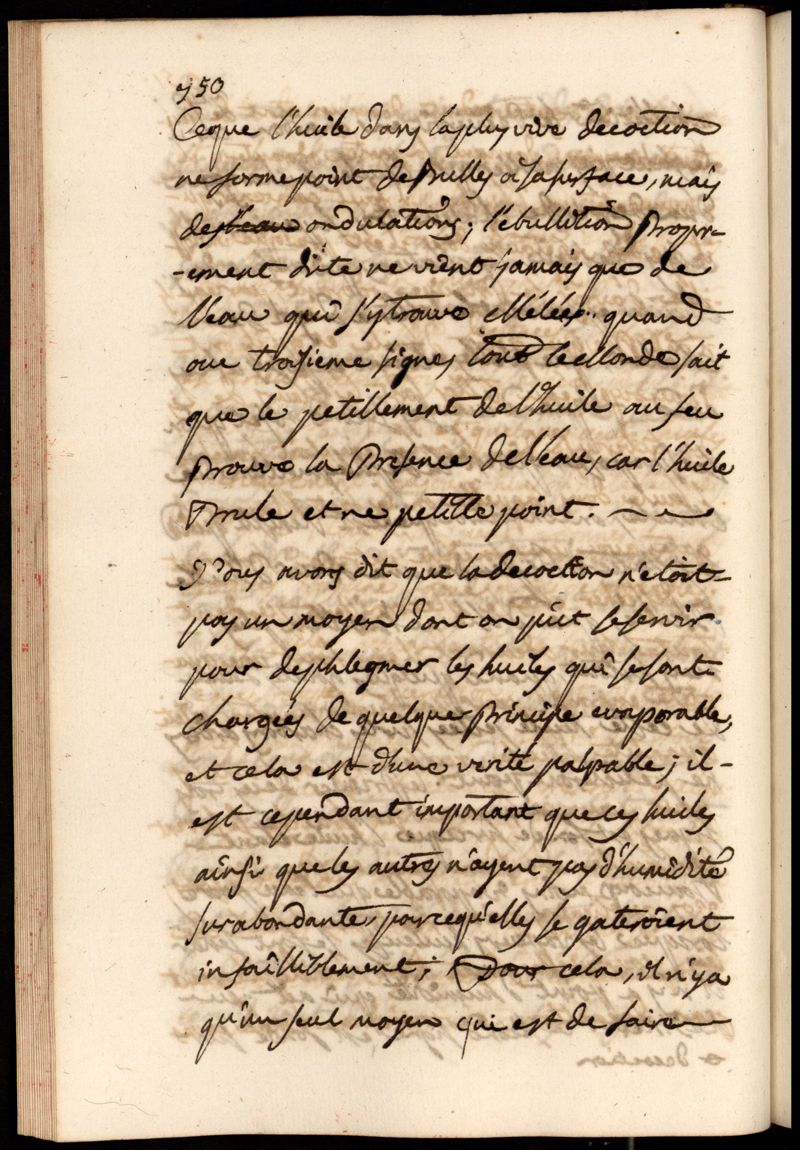 750
Ceque l'huile dans laplus vive decoction
ne forme point debulles a sa surface, mais
des ondulations; l'ebullition propr-
-ement dite ne vient jamais que de
l'eau qui s'y trouve Melée.. quand
au troisieme signes tout le Monde sait
que le petillement de l'huile au feu
prouve la presence de l'eau, car l'huile
Brule et ne petille point.
Nous avons dit que la decoction n'etoit
pas un moyen dont on pût se servir
pour desphlegmer les huiles qui se sont
chargées de quelque principe evaporable,
et cela est d'une verité palpable; il-
est cependant important que ces huiles
ainsi que les autres n'ayent pas d'humidité
surabondante, parcequ'elles se gateroient
infailliblement; Pour cela, il n'ya
qu'un seul moyen qui est de faire